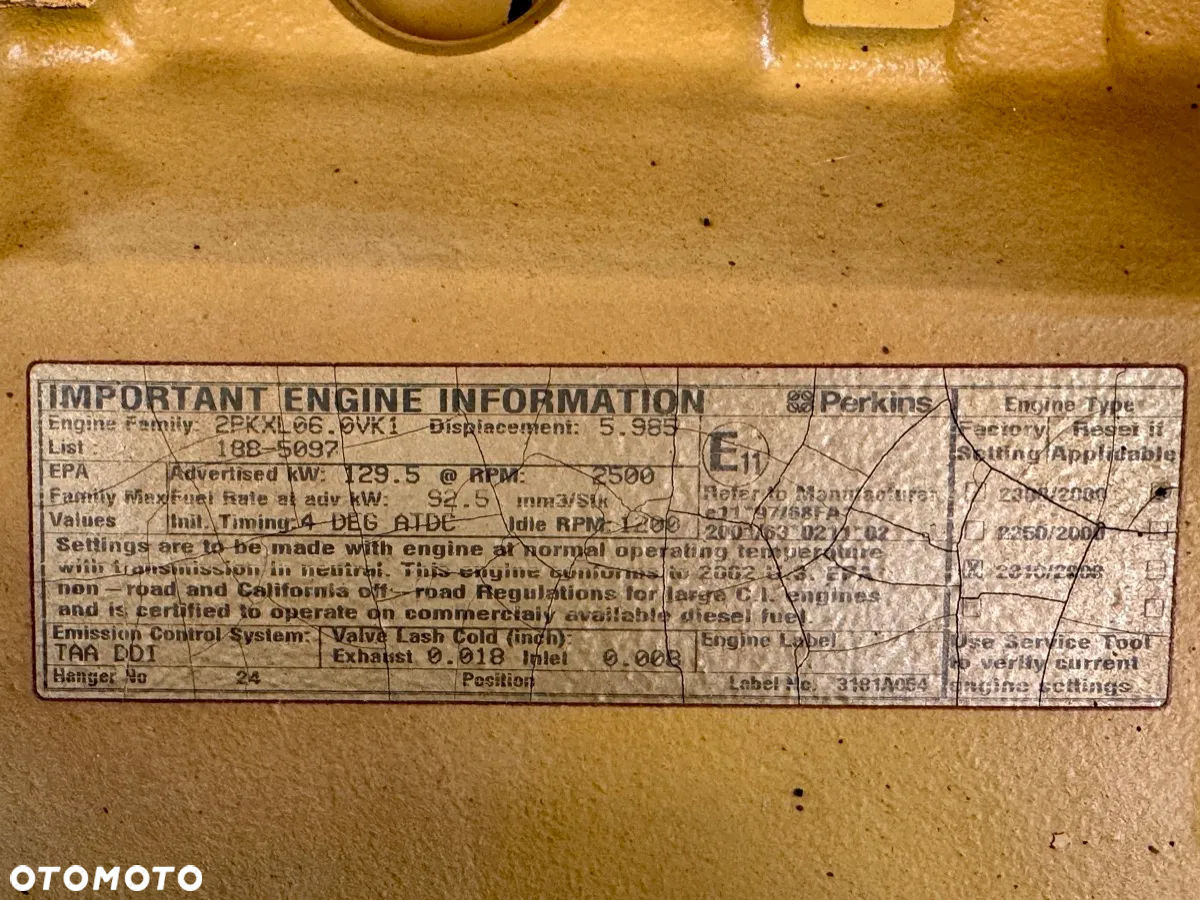 IMPORTANT ENGINE INFORMATION Perkins
Engine Family: 2PKXL06.0VK1 Displacement: 5.985
List : 188-5097
EPA Advertised kW: 129.5 @ RPM: 2500
Family Max Fuel Rate at adv kW: 92.5 mm3/Stk
Values Init. Timing: 4 DEG ATDC Idle RPM: 1200
Settings are to be made with engine at normal operating temperature
with transmission in neutral. This engine conforms to 2002 U.S. EPA
non-road and California off-road Regulations for large C.I. engines
and is certified to operate on commercialy available diesel fuel.
Emission Control System: Valve Lash Cold (inch):
TAA DDI Exhaust 0.018 Inlet 0.008
Hanger No 24 Position
E11
Refer to Manufacturer
e11*97/68FA*
2001/63*0211*02
Engine Label
Label No. 3181A064
Engine Type
Factory Reset if
Setting Applicable
2250/2000
Use Service Tool
to verify current
engine settings
OTOMOTO